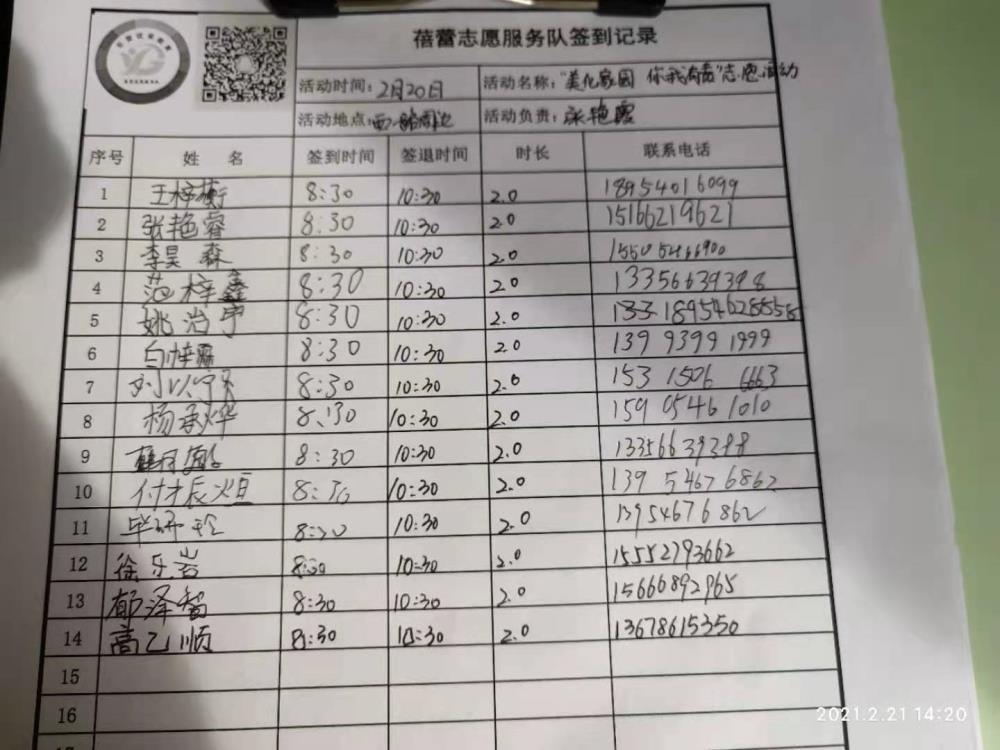 蓓蕾志愿服务队签到记录
活动时间：2月20日 活动名称："美化家园 你我有责"志愿活动
活动地点：西 活动负责：张艳霞
序号 姓 名 签到时间 签退时间 时长 联系电话
1 王梓蘅 8:30 10:30 2.0 18954016099
2 张艳睿 8:30 10:30 2.0 15166219621
3 李昊森 8:30 10:30 2.0 15505466900
4 范梓鑫 8:30 10:30 2.0 13356639398
5 姚治宇 8:30 10:30 2.0 18954628558
6 白梓霖 8:30 10:30 2.0 139 9399 1999
7 刘以 8:30 10:30 2.0 153 1506 6663
8 杨承烨 8:30 10:30 2.0 159 0546 1010
9 8:30 10:30 2.0 13356639398
10 付才辰 8:30 10:30 2.0 139 5467 6862
11 毕研玲 8:30 10:30 2.0 13954676862
12 徐乐岩 8:30 10:30 2.0 15552793662
13 郁泽智 8:30 10:30 2.0 15666892965
14 高乙顺 8:30 10:30 2.0 13678615350
15
16
2021.2.21 14:20